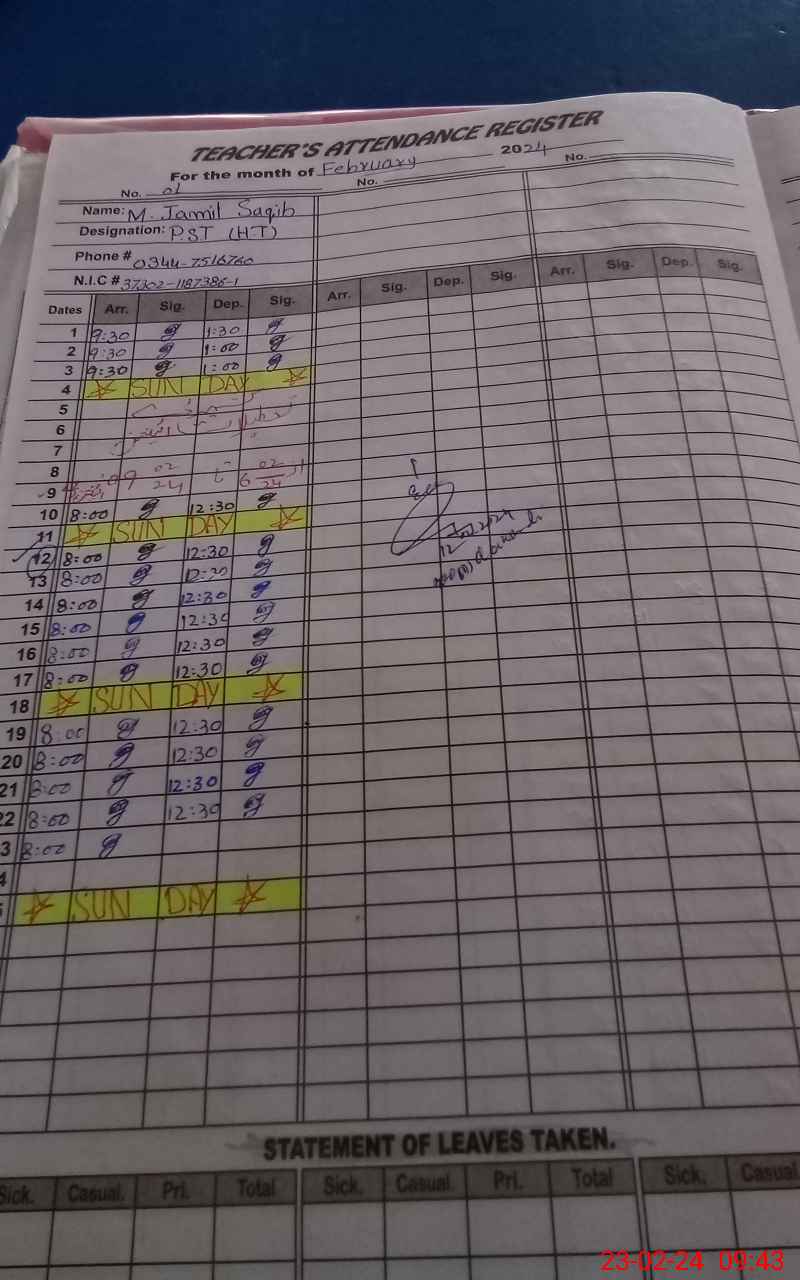 TEACHER'S ATTENDANCE REGISTER
For the month of February 2024
No. 01 No. No.
Name: M. Jamil Saqib
Designation: P.S.T (H.T)
Phone # 0344-7516760
N.I.C # 37302-1187386-1
Dates Arr. Sig. Dep. Sig. Arr. Sig. Dep. Sig. Arr. Sig. Dep. Sig.
1 9:30 1:30
2 9:30 1:00
3 9:30 1:00
4 SUN DAY
5
6
7
8
9 09 02/24 تا 02/24
10 8:00 12:30
11 SUN DAY
12 8:00 12:30
13 8:00 12:30
14 8:00 12:30
15 8:00 12:30
16 8:00 12:30
17 8:00 12:30
18 SUN DAY
19 8:00 12:30
20 8:00 12:30
21 8:00 12:30
22 8:00 12:30
3 8:00
4
SUN DAY
STATEMENT OF LEAVES TAKEN.
Sick. Casual. Pri. Total Sick. Casual. Pri. Total Sick. Casual.
23-02-24 09:43